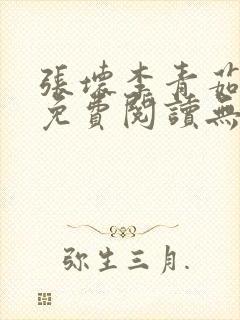 張壞李青茹
免費閱讀無
弥生三月.